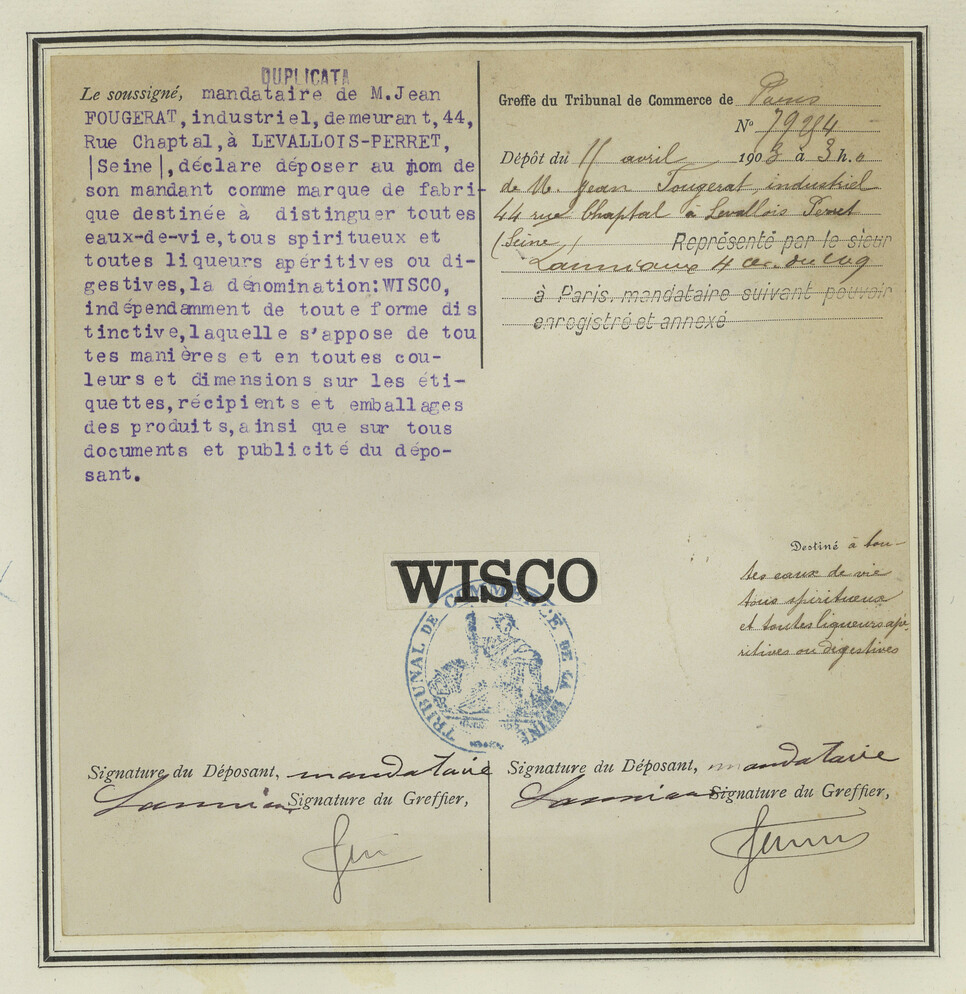 DUPLICATA
Le soussigné, mandataire de M.Jean
FOUGERAT,industriel,demeurant,44,
Rue Chaptal,à LEVALLOIS-PERRET,
|Seine|,déclare déposer au nom de
son mandant comme marque de fabri-
que destinée à distinguer toutes
eaux-de-vie,tous spiritueux et
toutes liqueurs apéritives ou di-
gestives,la dénomination:WISCO,
indépendamment de toute forme dis
tinctive,laquelle s'appose de tou
tes manières et en toutes cou-
leurs et dimensions sur les éti-
quettes,récipients et emballages
des produits,ainsi que sur tous
documents et publicité du dépo-
sant.
Greffe du Tribunal de Commerce de Paris
N°
Dépôt du 11 avril 1903 à 3 h.
de M. Jean Fougerat, industriel
44 rue Chaptal à Levallois Perret
(Seine) Représenté par le sieur
4
à Paris, mandataire suivant pouvoir
enregistré et annexé
WISCO
TRIBUNAL DE COMMERCE DE LA SEINE
Destiné à tou-
tes eaux de vie
tous spiritueux
et toutes liqueurs apé-
ritives ou digestives
Signature du Déposant, mandataire
Signature du Greffier,
Signature du Déposant, mandataire
Signature du Greffier,